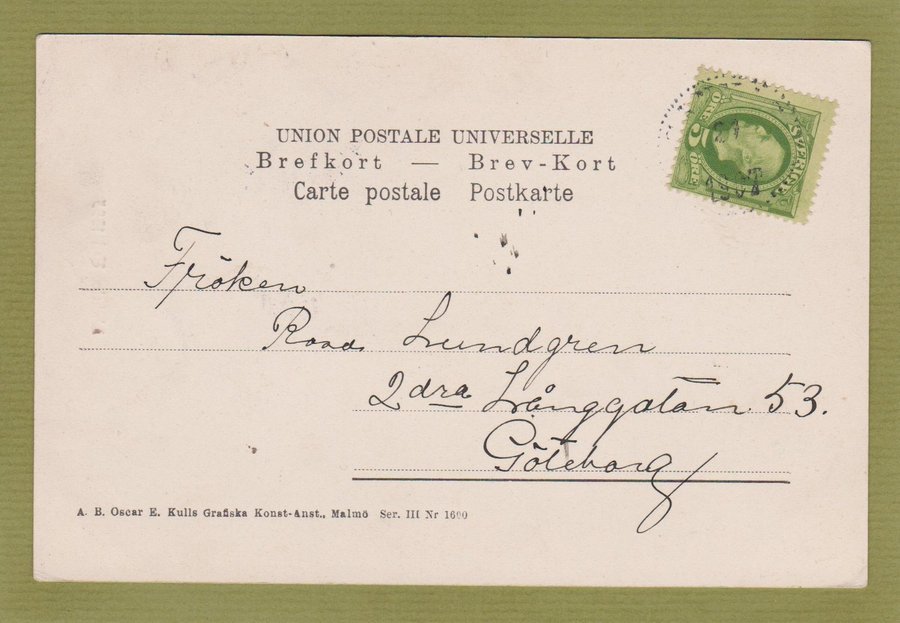 UNION POSTALE UNIVERSELLE
Brefkort — Brev-Kort
Carte postale Postkarte
SVERIGE
5
ÖRE
ÖRE
21
Fröken
Lundgren
2dra Långgatan 53.
Göteborg
A. B. Oscar E. Kulls Grafiska Konst-Anst., Malmö Ser. III Nr 1600